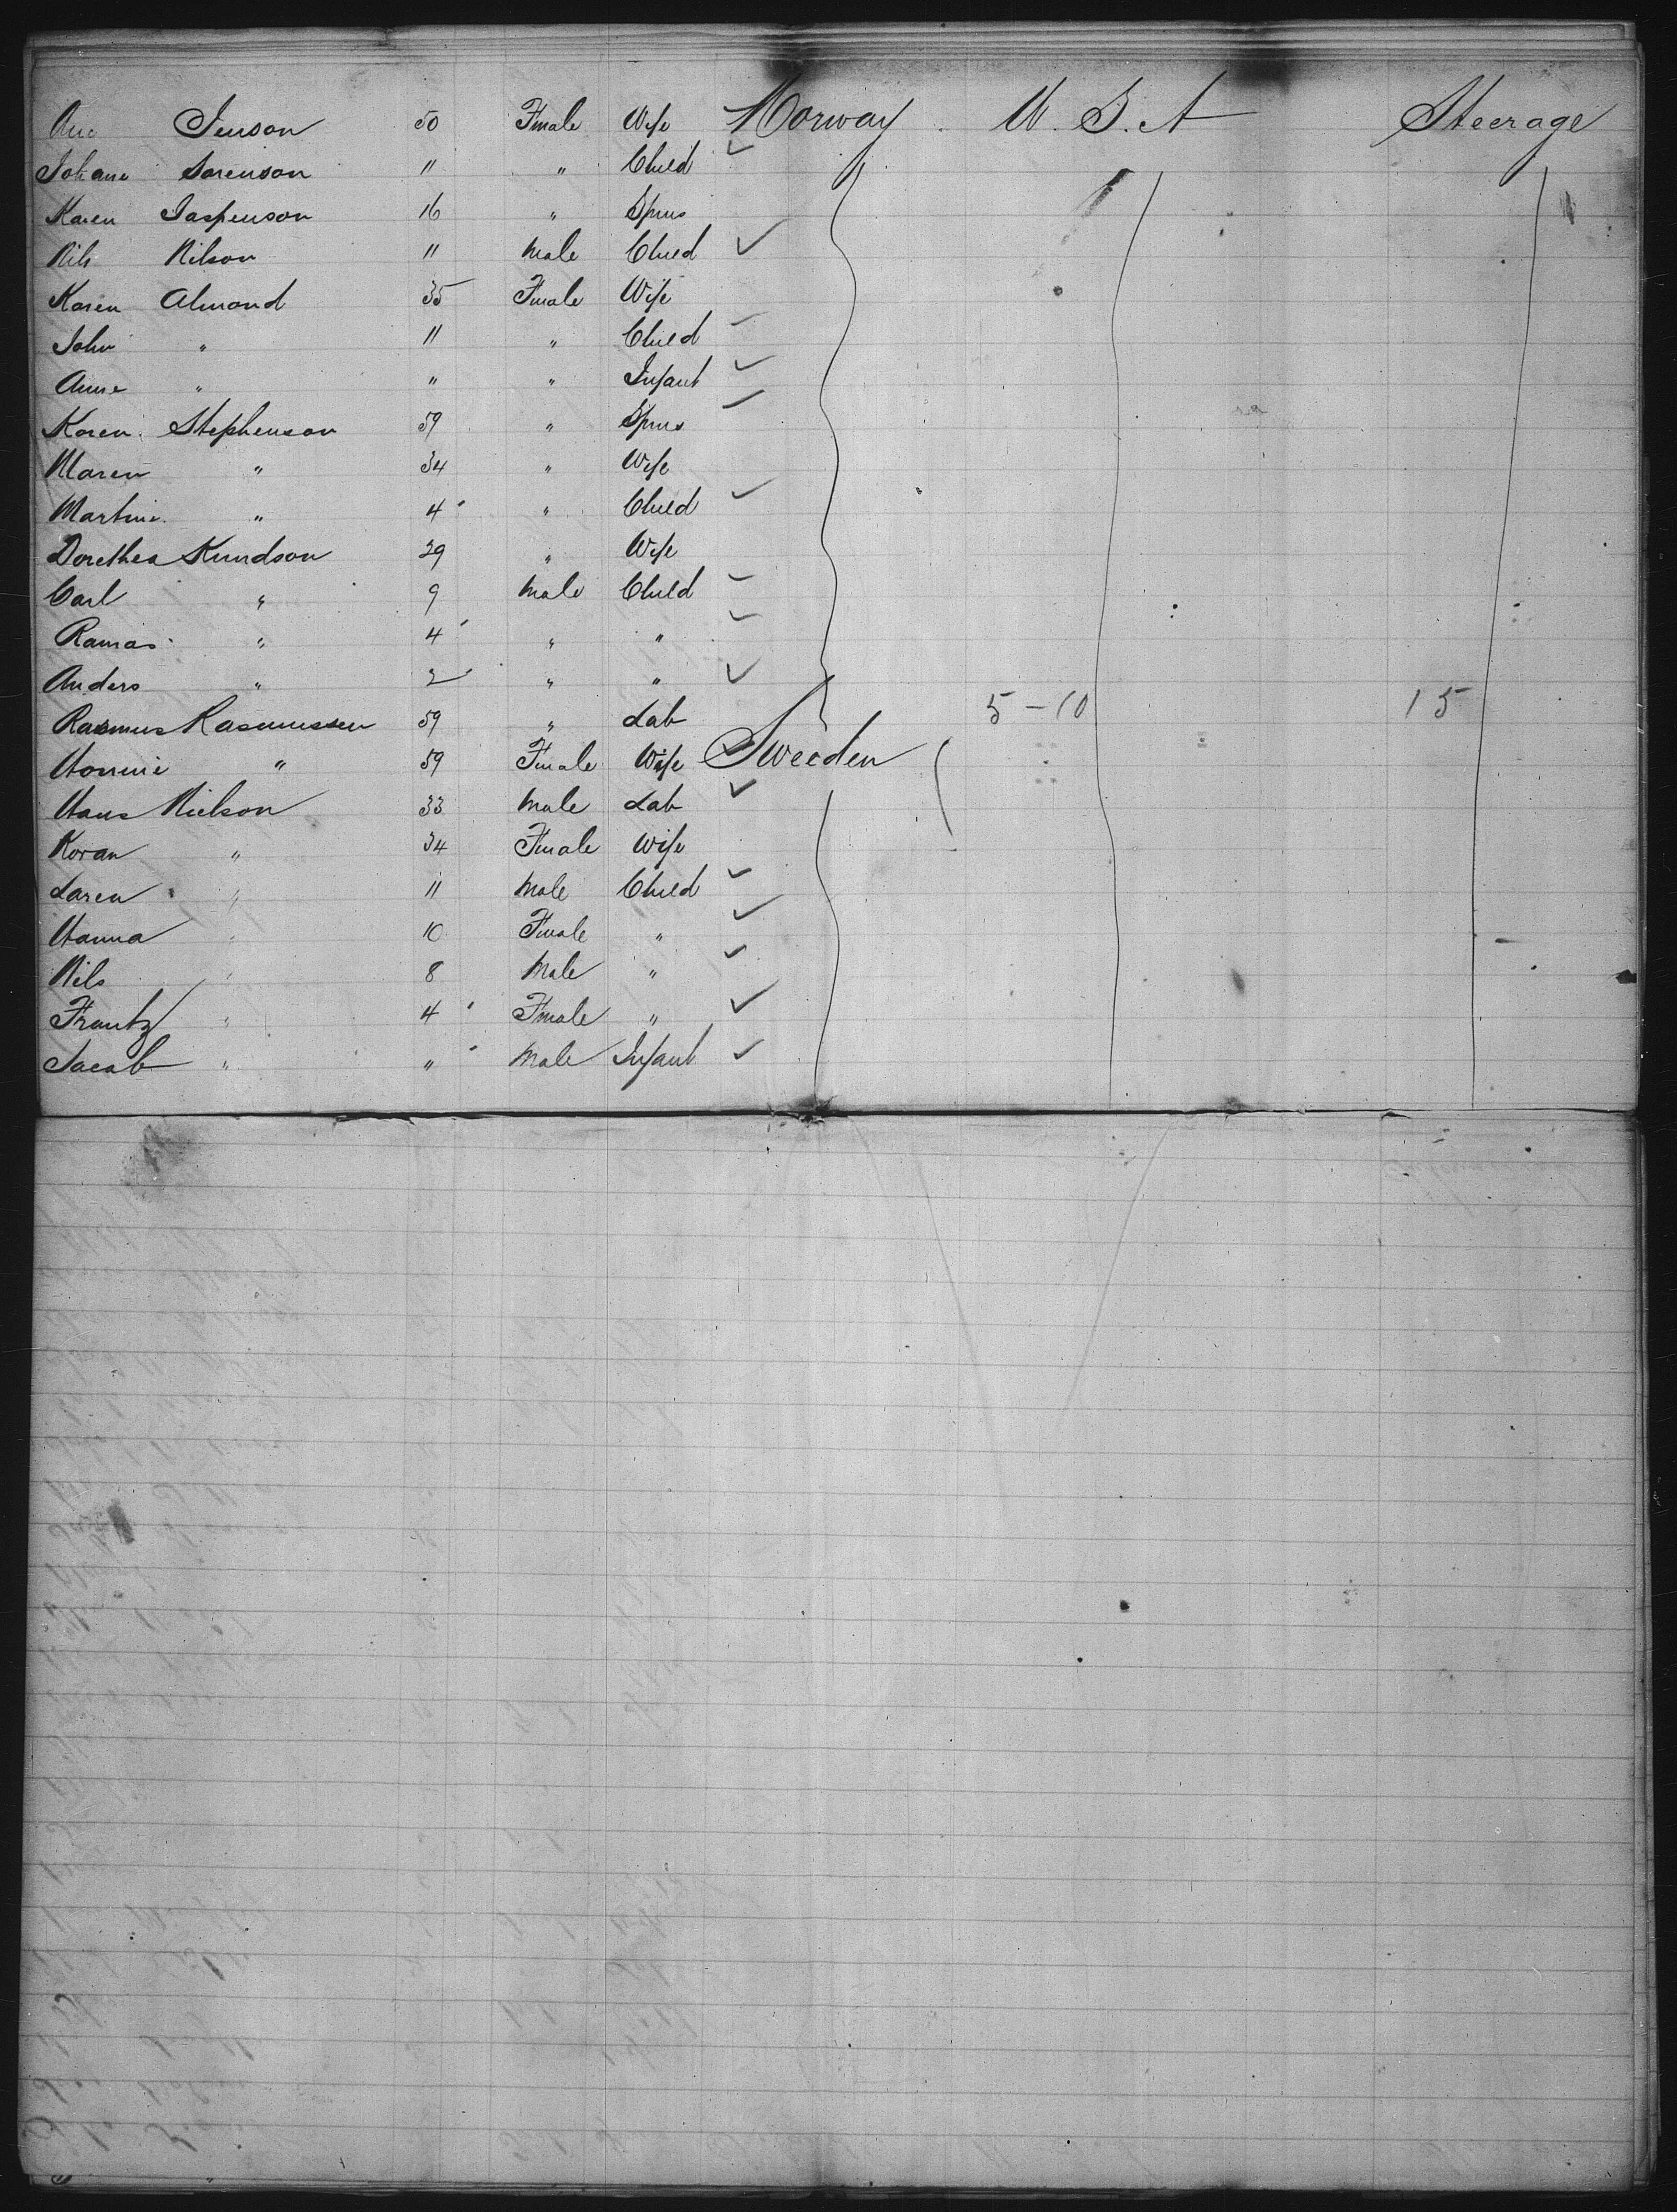 Ane Jenson 50 Female Wife Norway U.S.A Steerage
Johane Sorenson 11 " Child
Karen Jaspenson 16 " Spns
Nils Nilson 11 Male Child
Karen Almond 35 Female Wife
John " 11 " Child
Anne " " " Infant
Karen Stephenson 59 " Spns
Maren " 34 " Wife
Martine " 4 " Child
Dorethea Knudson 29 " Wife
Carl " 9 Male Child
Ramas " 4 " "
Anders " 2 " "
Rasmus Rasmussen 59 " Lab 5-10 15
" 59 Female Wife Sweeden
Hans Nielson 33 Male Lab
Koran " 34 Female Wife
Laren " 11 Male Child
Hanna " 10 Female "
Nils " 8 Male "
Frantz " 4 Female "
Jacob " " Male Infant